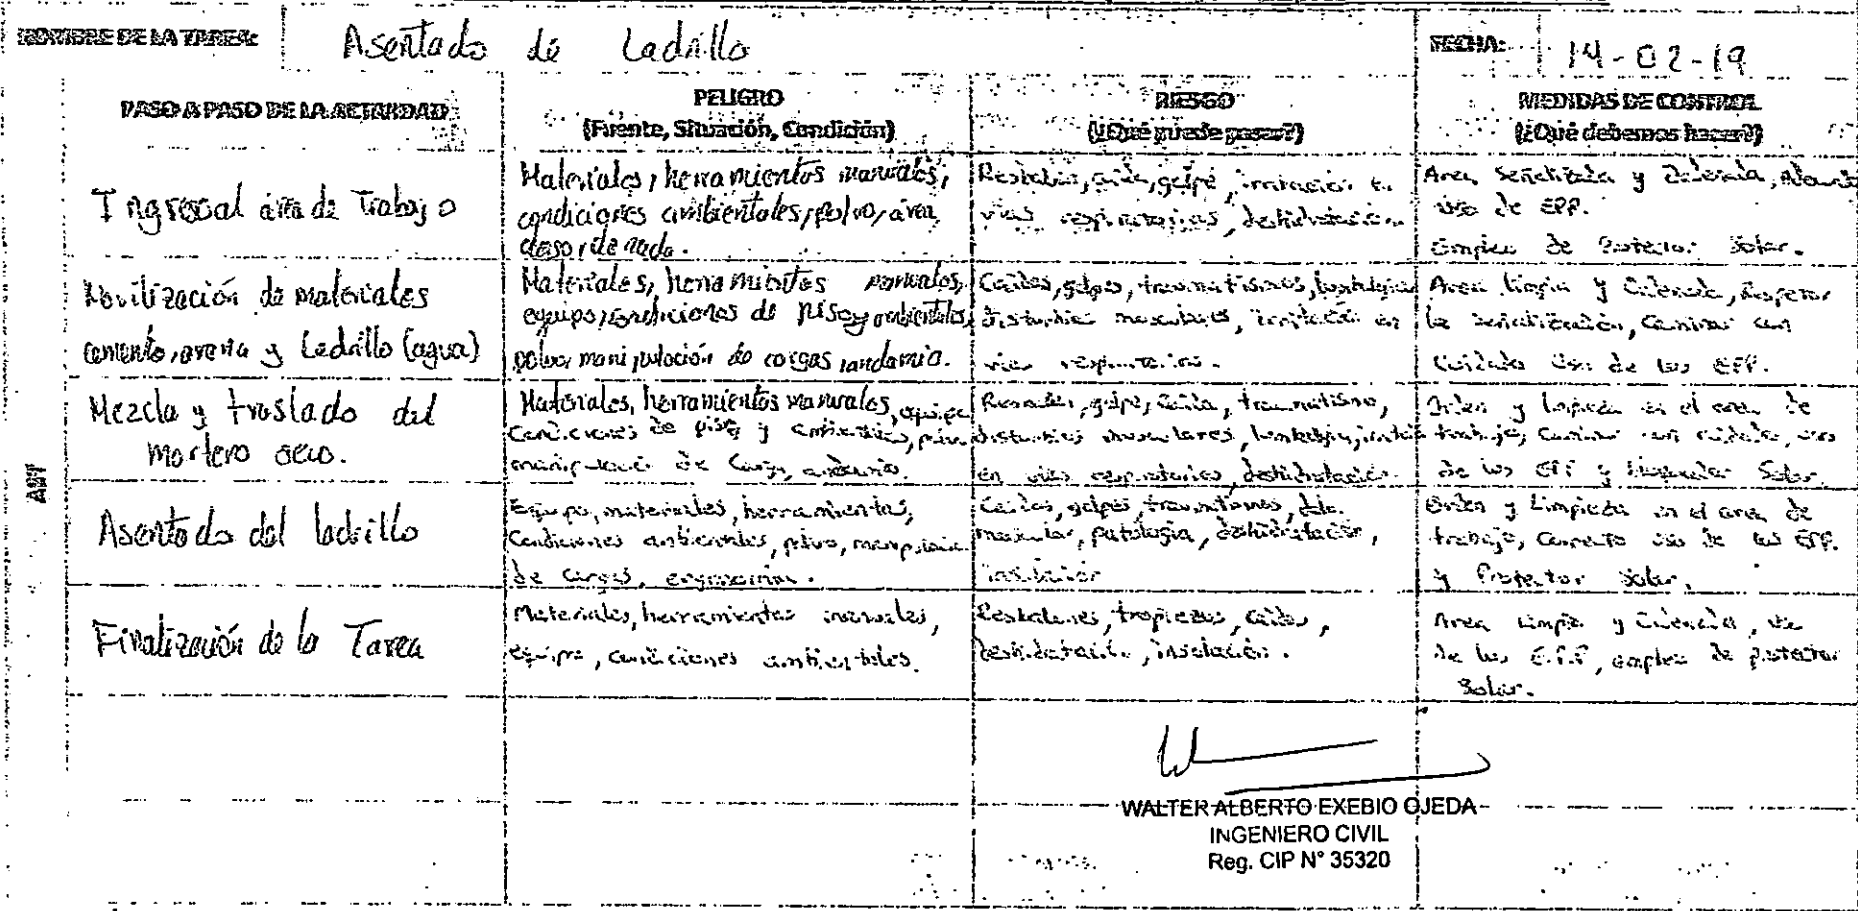 NOMBRE DE LA TAREA: Asentado de Ladrillo FECHA: 14-02-19
PASO A PASO DE LA ACTIVIDAD
PELIGRO
(Fuente, Situación, Condición)
RIESGO
(¿Qué puede pasar?)
MEDIDAS DE CONTROL
(¿Qué debemos hacer?)
Ingresoal área de Trabajo
Materiales, herramientas manuales,
condiciones ambientales, polvo, área
desordenada.
Resbalón, caída, golpe, irritación en
vías respiratorias, deshidratación.
Area señalizada y Ordenada,
uso de EPP.
Empleo de Protector Solar.
Movilización de materiales
cemento, arena y Ladrillo (agua)
Materiales, herramientas manuales,
equipo, condiciones de piso y ambientales,
polvo, manipulación de cargas, andamio.
Caídas, golpes, traumatismos, lumbalgia
disturbios musculares, irritación en
vías respiratorias.
Area limpia y Ordenada, Respetar
la señalización, Caminar con
cuidado Uso de los EPP.
Mezcla y traslado del
mortero seco.
Materiales, herramientas manuales, equipo
Condiciones de piso y ambientales, polvo
manipulación de Carga, andamio.
golpe, Caída, traumatismo,
disturbios musculares, lumbalgia,
en vías respiratorias, deshidratación.
Orden y limpieza en el area de
trabajo, Caminar con cuidado, uso
de los EPP y Solar.
Asentado del ladrillo
Equipo, materiales, herramientas,
Condiciones ambientales, polvo,
de Cargas, ergonomía.
Caídas, golpes, traumatismos,
muscular, patología, deshidratación,
insolación
Orden y Limpieza en el area de
trabajo, Correcto uso de los EPP.
y Protector Solar.
Finalización de la Tarea
Materiales, herramientas manuales,
equipo, Condiciones ambientales.
Resbalones, tropiezos, caídas,
deshidratación, insolación.
Area limpia y Ordenada, uso
de los E.P.P, empleo de protector
Solar.
WALTER ALBERTO EXEBIO OJEDA
INGENIERO CIVIL
Reg. CIP N° 35320